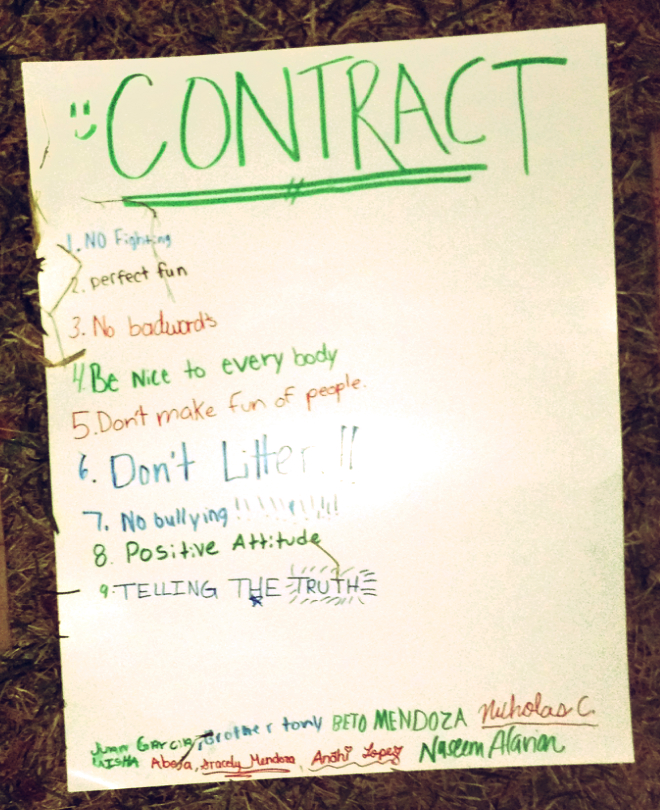 CONTRACT
1. NO Fighting
2. perfect fun
3. No badwords
4. Be Nice to every body
5. Don't make fun of people.
6. Don't Litter!!
7. No bullying !!!!!!!!!!
8. Positive Attitude
9. TELLING THE TRUTH
Juan Garcia, Brother tony BETO MENDOZA Nicholas C.
AISHA Aracely Mendoza, Anahi Lopez Naseem Alavian